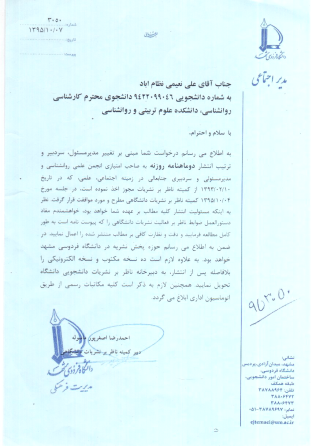 ۳۰۵۰
۱۳۹۵/۱۰/۰۷
مدیر اجتماعی
جناب آقای علی نعیمی نظام آباد
به شماره دانشجویی ۹۴۲۲۰۹۹۰۴۶ دانشجوی محترم کارشناسی
روانشناسی، دانشکده علوم تربیتی و روانشناسی
با سلام و احترام،
به اطلاع می رسانم درخواست شما مبنی بر تغییر مدیرمسئول، سردبیر و
ترتیب انتشار دوماهنامه روزنه به صاحب امتیازی انجمن علمی روانشناسی و
مدیرمسئولی و سردبیری جنابعالی در زمینه اجتماعی، علمی، که در تاریخ
از کمیته ناظر بر نشریات مجوز اخذ نموده است، در جلسه مورخ
۱۳۹۵/۱۰/۰۴ کمیته ناظر بر نشریات دانشگاهی مطرح و مورد موافقت قرار گرفت. نظر
به اینکه مسئولیت انتشار کلیه مطالب بر عهده شما خواهد بود، خواهشمندم مفاد
دستورالعمل ضوابط ناظر بر فعالیت نشریات دانشگاهی را که پیوست نامه است به طور
کامل مطالعه فرمایید و دقت و نظارت کافی بر مطالب منتشر شده را اعمال نمایید. در
ضمن به اطلاع می رسانم حوزه پخش نشریه در دانشگاه فردوسی مشهد
خواهد بود. به علاوه لازم است ده نسخه مکتوب و نسخه الکترونیکی را
بلافاصله پس از انتشار، به دبیرخانه ناظر بر نشریات دانشجویی دانشگاه
تحویل نمایید. همچنین لازم به ذکر است کلیه مکاتبات رسمی از طریق
اتوماسیون اداری ابلاغ می گردد
احمدرضا اصغرپور ماسوله
دبیر کمیته ناظر بر نشریات دانشگاهی
دانشگاه فردوسی مشهد
مدیریت فرهنگی
نشانی:
مشهد، میدان آزادی، پردیس
دانشگاه فردوسی،
ساختمان امور دانشجویی،
طبقه همکف
تلفن:
نمابر:
ایمیل: